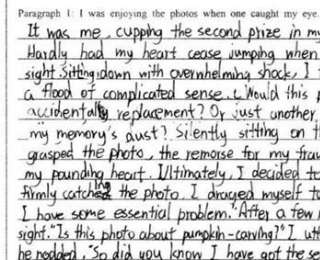 Paragraph 1: I was enjoying the photos when one caught my eye.
It was me, cupping the second prize in my
Hardly had my heart cease jumping when
sight. Sitting down with overwhelming shock, I
a flood of complicated sense. Would this
accidentally replacement? Or just another
my memory's dust? Silently sitting on
grasped the photo, the remorse for my
my pounding heart. Ultimately, I decided to
firmly catching the photo. I draged myself to
I have some essential problem. "After a few
sight. "Is this photo about pumpkin-carving?" I
he nodded. "So did you know I have got the